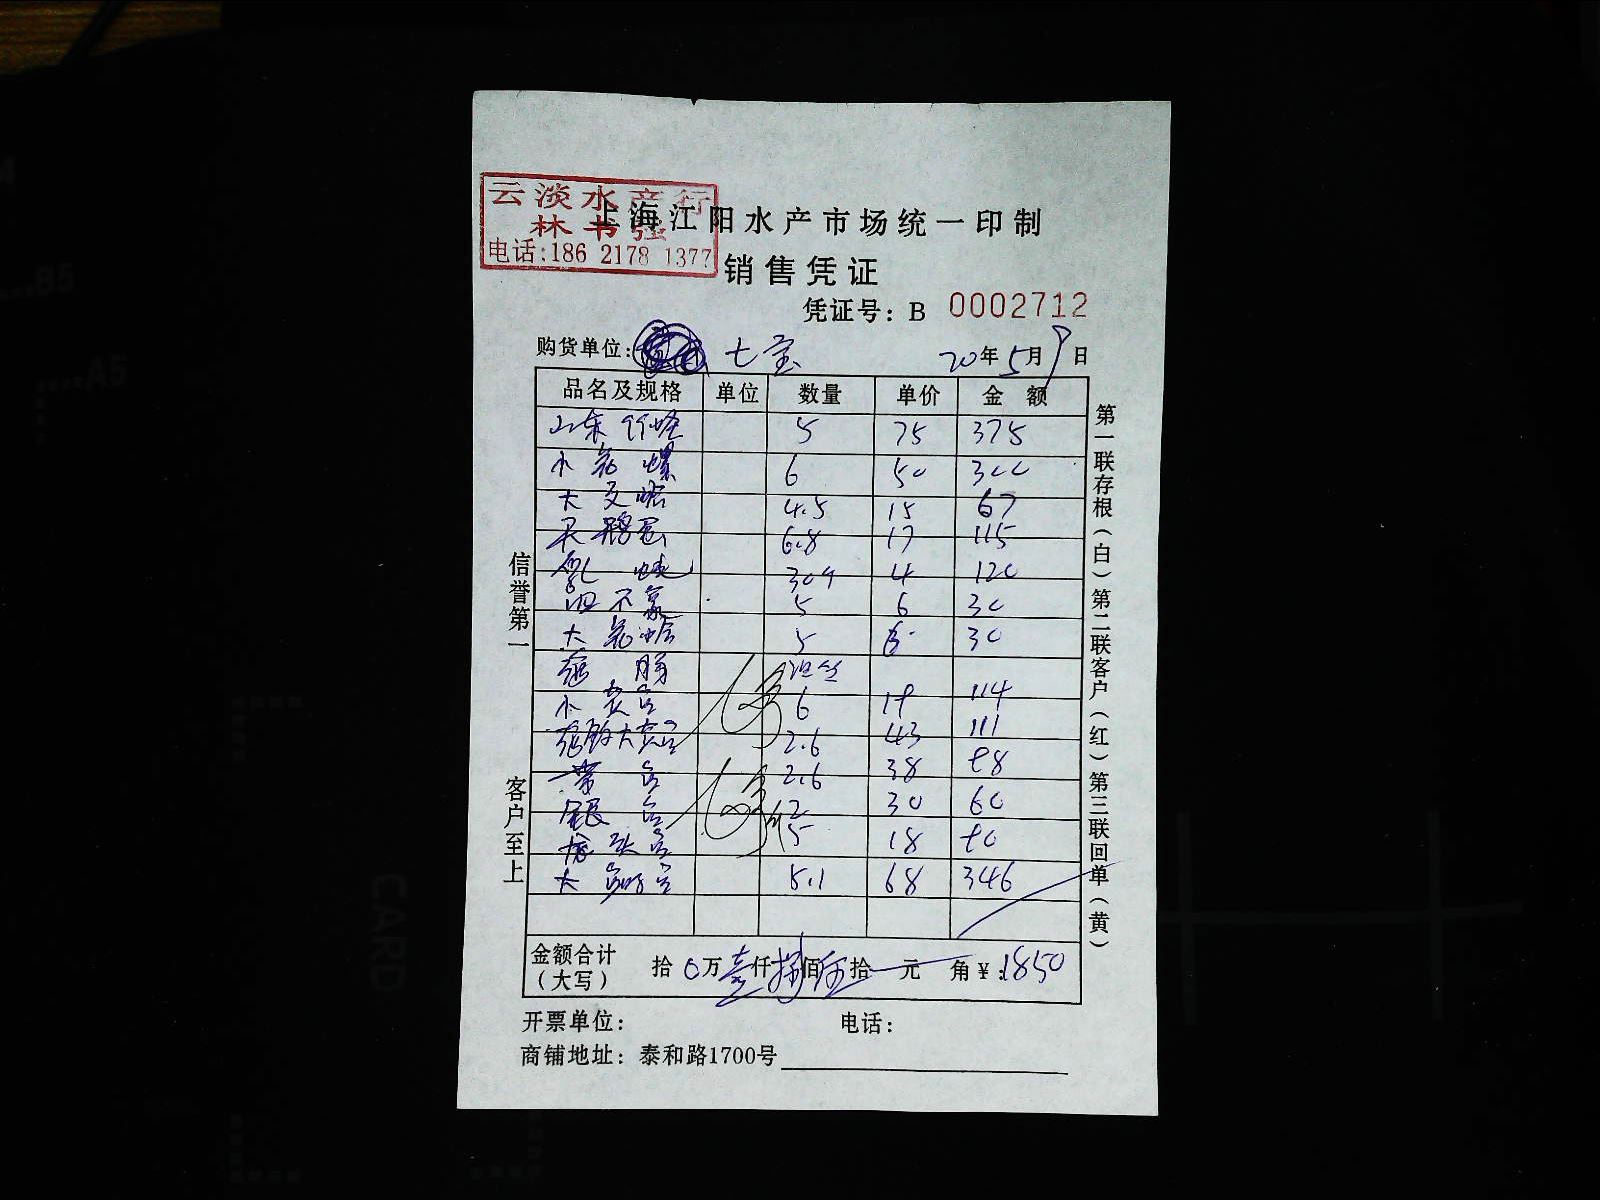 云淡水产行
林书强
电话:186 2178 1377
上海江阳水产市场统一印制
销售凭证
凭证号: B 0002712
购货单位: 七宝 20年5月9日
品名及规格 单位 数量 单价 金额
山东 5 75 375
小花螺 6 50 300
大文蛤 4.5 15 67
天鹅蛋 6.8 17 115
304 4 120
5 6 30
大花蛤 5 6 30
6 19 114
2.6 43 111
2.6 38 98
银 2 30 60
头 5 18 90
大 5.1 68 346
金额合计
(大写) 拾0万壹仟捌佰伍拾元角¥:1850
开票单位: 电话:
商铺地址: 泰和路1700号
信誉第一
客户至上
第一联存根(白)第二联客户(红)第三联回单(黄)